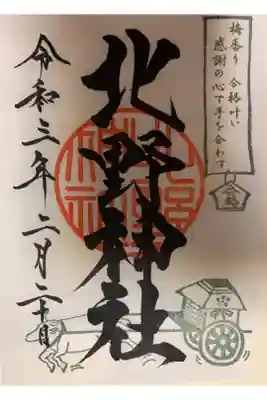 梅香り 合格叶い
感謝の心で手を合わす
合格
北野神社
令和三年二月二十日